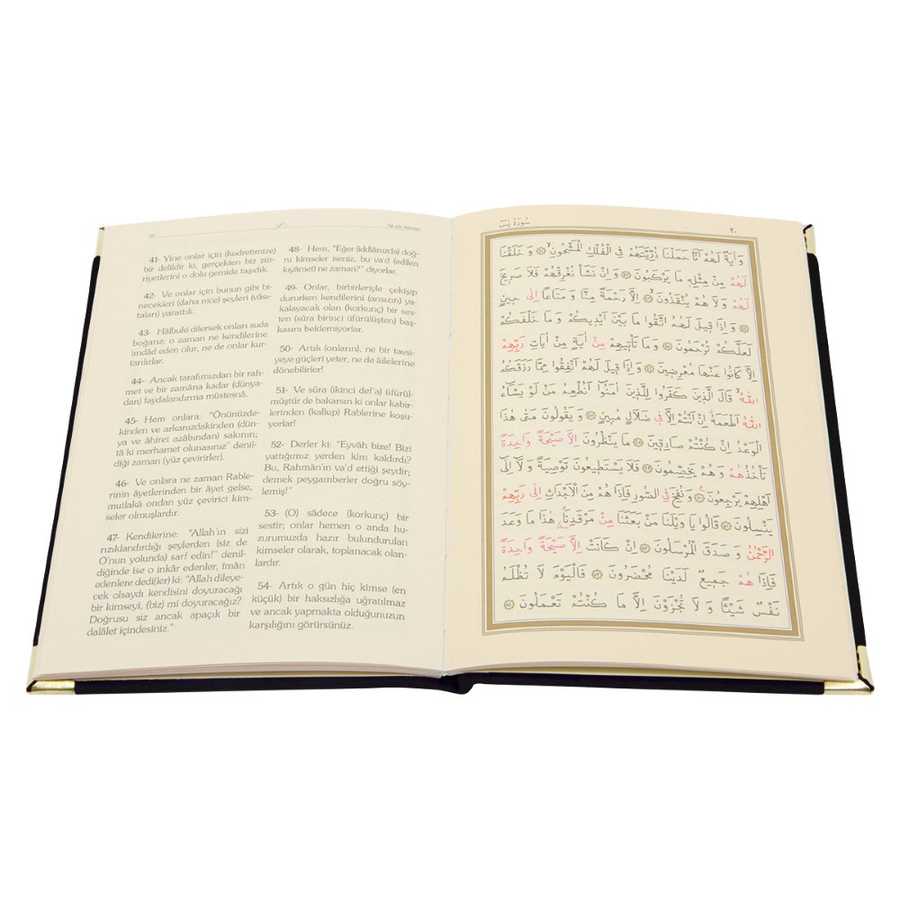 41- Yine onlar için (kudretimize)
bir delildir ki, gerçekten biz zür-
riyetlerini o dolu gemide taşıdık.
42- Ve onlar için bunun gibi bi-
necekleri (daha nice) şeyleri (vâsı-
taları) yarattık.
43- Hâlbuki dilersek onları suda
boğarız; o zaman ne kendilerine
imdâd eden olur, ne de onlar kur-
tarılırlar.
44- Ancak tarafımızdan bir rah-
met ve bir zamâna kadar (dünya-
dan) faydalandırma müstesnâ.
45- Hem onlara: "Önünüzde-
kinden ve arkanızdakinden (dün-
ya ve âhiret azâbından) sakının;
tâ ki merhamet olunasınız" denil-
diği zaman (yüz çevirirler).
46- Ve onlara ne zaman Rable-
rinin âyetlerinden bir âyet gelse,
mutlakâ ondan yüz çevirici kim-
seler olmuşlardır.
47- Kendilerine: "Allah'ın sizi
rızıklandırdığı şeylerden (siz de
O'nun yolunda) sarf edin!" denil-
diğinde ise o inkâr edenler, îmân
edenlere dedi(ler) ki: "Allah dileye-
cek olsaydı kendisini doyuracağı
bir kimseyi, (biz) mi doyuracağız?
Doğrusu siz ancak apaçık bir
dalâlet içindesiniz."
48- Hem, "Eğer (iddiânızda) doğ-
ru kimseler iseniz, bu va'd (edilen
kıyâmet) ne zaman?" diyorlar.
49- Onlar, birbirleriyle çekişip
dururken kendilerini (ansızın) ya-
kalayacak olan (korkunç) bir ses-
ten (sûra birinci üfürülüşten) baş-
kasını beklemiyorlar.
50- Artık (onların), ne bir tavsi-
yeye güçleri yeter, ne de âilelerine
dönebilirler!
51- Ve sûra (ikinci def'a) üfürül-
müştür de bakarsın ki onlar kabir-
lerinden (kalkıp) Rablerine koşu-
yorlar!
52- Derler ki: "Eyvâh bize! Bizi
yattığımız yerden kim kaldırdı?
Bu, Rahmân'ın va'd ettiği şeydir;
demek peygamberler doğru söy-
lemiş!"
53- (O) sâdece (korkunç) bir
sestir; onlar hemen o anda hu-
zurumuzda hazır bulundurulan
kimseler olarak, toplanacak olan-
lardır.
54- Artık o gün hiç kimse (en
küçük) bir haksızlığa uğratılmaz
ve ancak yapmakta olduğunuzun
karşılığını görürsünüz.
سُورَةُ يٰسٓ
٢٠
وَاٰيَةٌ لَهُمْ اَنَّا حَمَلْنَا ذُرِّيَّتَهُمْ فِي الْفُلْكِ الْمَشْحُونِ ﴿٤١﴾ وَخَلَقْنَا
لَهُمْ مِنْ مِثْلِهٖ مَا يَرْكَبُونَ ﴿٤٢﴾ وَاِنْ نَشَأْ نُغْرِقْهُمْ فَلَا صَرِيخَ
لَهُمْ وَلَا هُمْ يُنْقَذُونَ ﴿٤٣﴾ اِلَّا رَحْمَةً مِنَّا وَمَتَاعًا اِلٰى حِينٍ
﴿٤٤﴾ وَاِذَا قِيلَ لَهُمُ اتَّقُوا مَا بَيْنَ اَيْدِيكُمْ وَمَا خَلْفَكُمْ
لَعَلَّكُمْ تُرْحَمُونَ ﴿٤٥﴾ وَمَا تَأْتِيهِمْ مِنْ اٰيَةٍ مِنْ اٰيَاتِ رَبِّهِمْ
اِلَّا كَانُوا عَنْهَا مُعْرِضِينَ ﴿٤٦﴾ وَاِذَا قِيلَ لَهُمْ اَنْفِقُوا مِمَّا رَزَقَكُمُ
اللّٰهُ قَالَ الَّذِينَ كَفَرُوا لِلَّذِينَ اٰمَنُوا اَنُطْعِمُ مَنْ لَوْ يَشَاءُ
اللّٰهُ اَطْعَمَهُ اِنْ اَنْتُمْ اِلَّا فِي ضَلَالٍ مُبِينٍ ﴿٤٧﴾ وَيَقُولُونَ مَتٰى هٰذَا
الْوَعْدُ اِنْ كُنْتُمْ صَادِقِينَ ﴿٤٨﴾ مَا يَنْظُرُونَ اِلَّا صَيْحَةً وَاحِدَةً
تَأْخُذُهُمْ وَهُمْ يَخِصِّمُونَ ﴿٤٩﴾ فَلَا يَسْتَطِيعُونَ تَوْصِيَةً وَلَا اِلٰى
اَهْلِهِمْ يَرْجِعُونَ ﴿٥٠﴾ وَنُفِخَ فِي الصُّورِ فَاِذَا هُمْ مِنَ الْاَجْدَاثِ اِلٰى رَبِّهِمْ
يَنْسِلُونَ ﴿٥١﴾ قَالُوا يَا وَيْلَنَا مَنْ بَعَثَنَا مِنْ مَرْقَدِنَا هٰذَا مَا وَعَدَ
الرَّحْمٰنُ وَصَدَقَ الْمُرْسَلُونَ ﴿٥٢﴾ اِنْ كَانَتْ اِلَّا صَيْحَةً وَاحِدَةً
فَاِذَا هُمْ جَمِيعٌ لَدَيْنَا مُحْضَرُونَ ﴿٥٣﴾ فَالْيَوْمَ لَا تُظْلَمُ
نَفْسٌ شَيْئًا وَلَا تُجْزَوْنَ اِلَّا مَا كُنْتُمْ تَعْمَلُونَ ﴿٥٤﴾